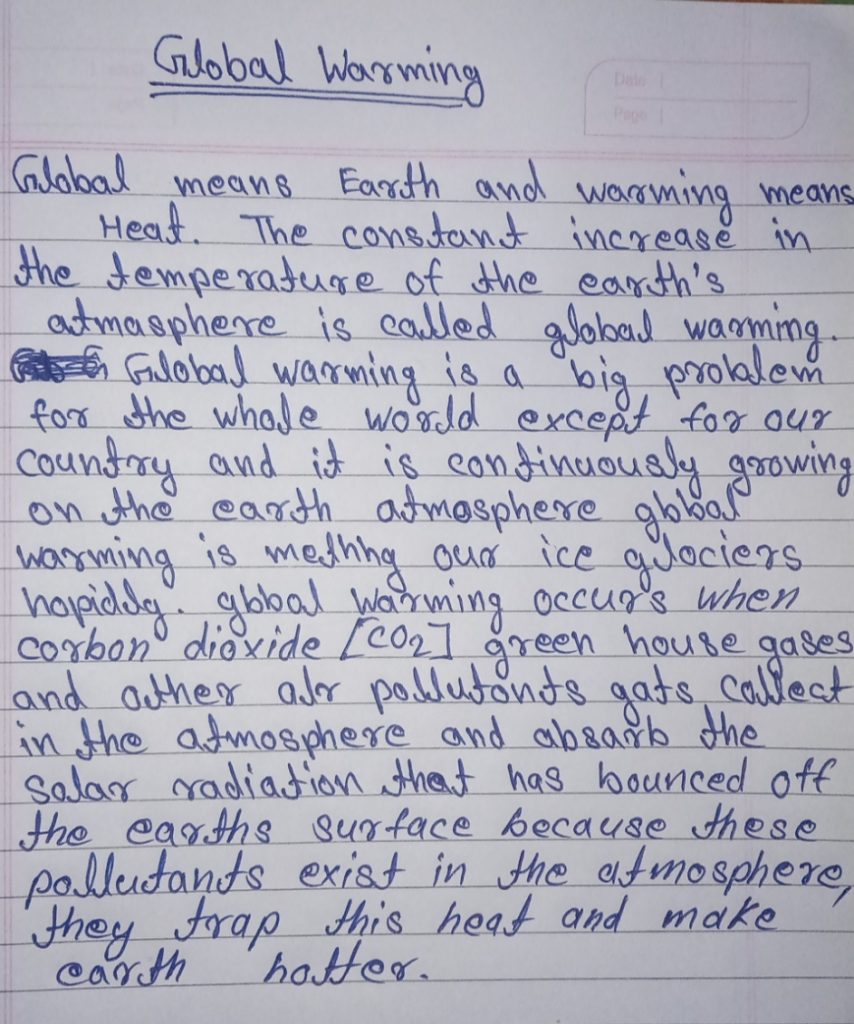 Global Warming
Date
Page
Global means Earth and warming means
Heat. The constant increase in
the temperature of the earth's
atmasphere is called global warming.
Global warming is a big problem
for the whole world except for our
country and it is continuously growing
on the earth atmosphere global
warming is our ice glociers
hapidly. global warming occurs when
corbon dioxide [CO2] green house gases
and other air pollutonts gats collect
in the atmosphere and absarb the
salar radiation that has bounced off
the earths surface because these
pollutants exist in the atmosphere,
they trap this heat and make
earth hotter.